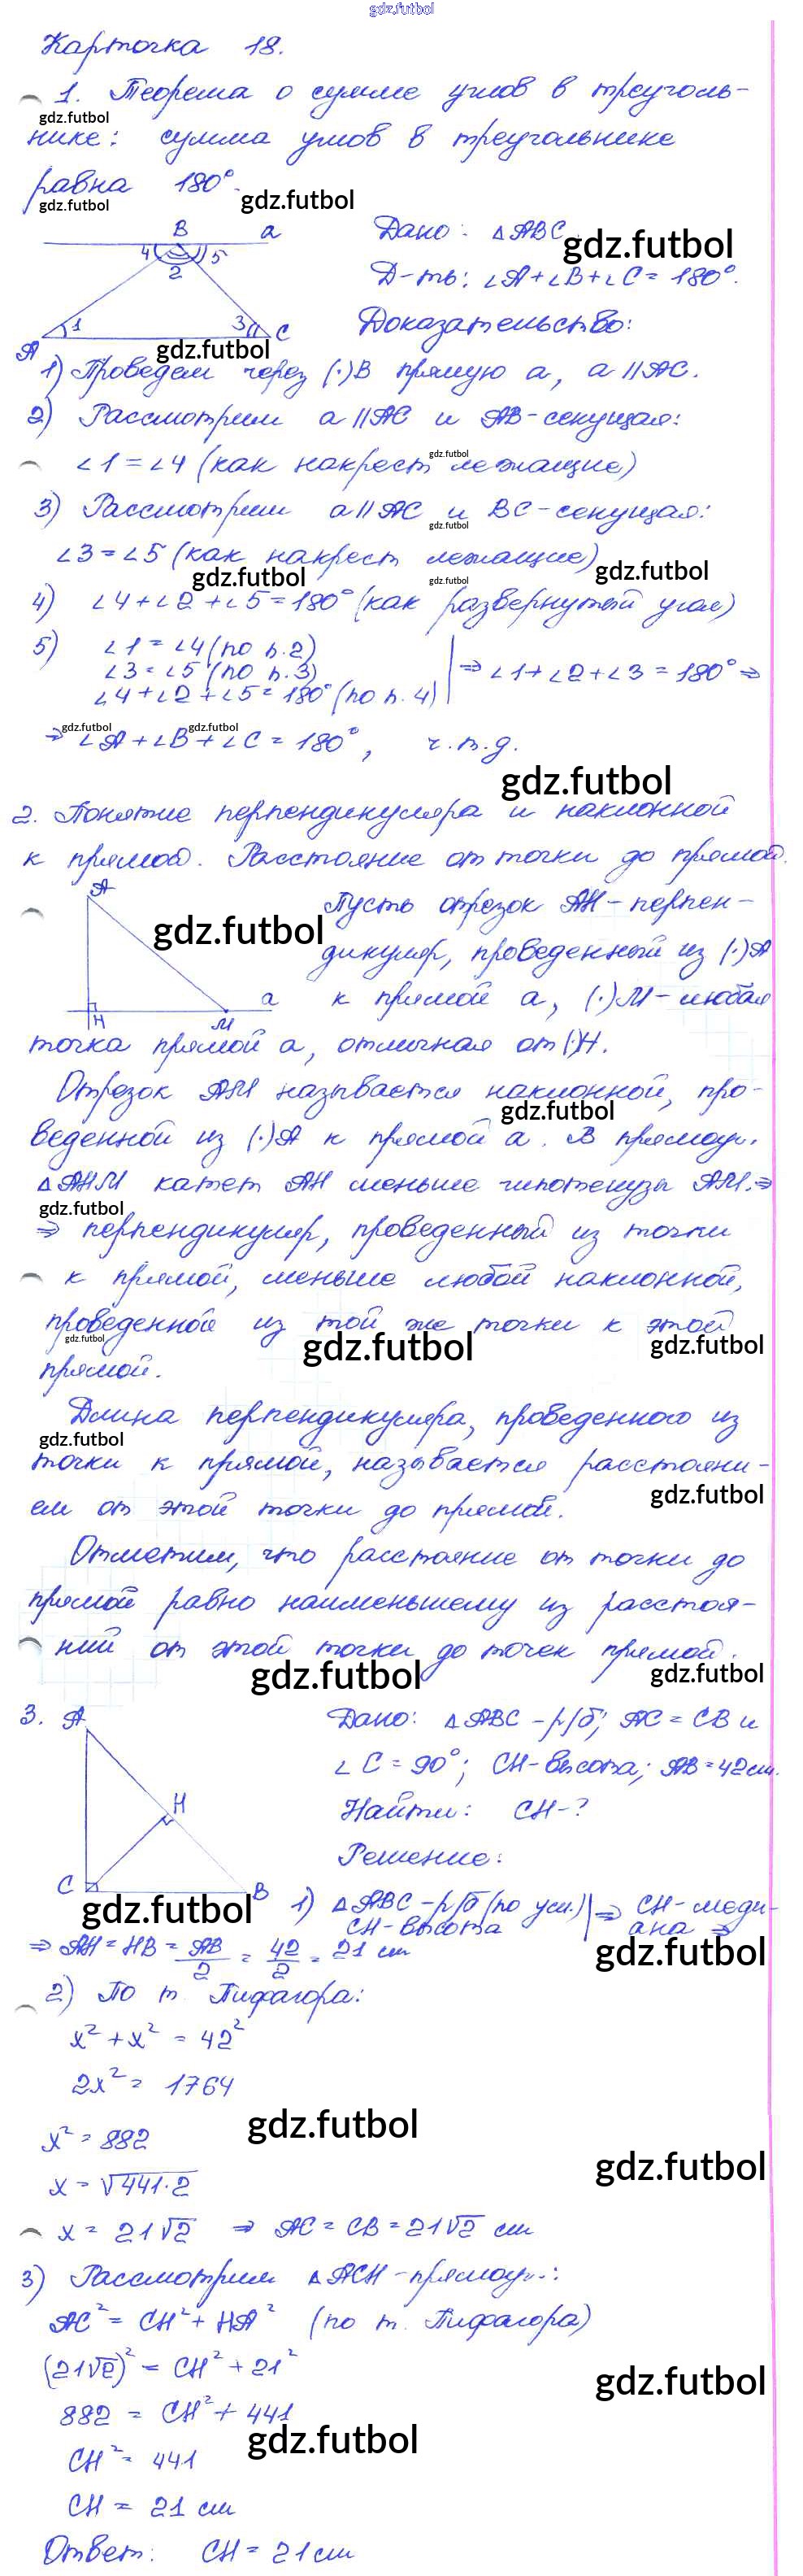 gdz.futbol
Карточка 18.
1. Теорема о сумме углов в треуголь-
gdz.futbol
нике: сумма углов в треугольнике
равна 180°.
gdz.futbol
gdz.futbol
B a
4 2 5
1 3
A C
Дано: △ABC.
gdz.futbol
Д-ть: ∠A+∠B+∠C = 180°.
Доказательство:
gdz.futbol
1) Проведем через (·)B прямую a, a || AC.
2) Рассмотрим a || AC и AB-секущая:
∠1 = ∠4 (как накрест лежащие)
gdz.futbol
3) Рассмотрим a || AC и BC-секущая:
gdz.futbol
∠3 = ∠5 (как накрест лежащие)
gdz.futbol
gdz.futbol
gdz.futbol
4) ∠4+∠2+∠5 = 180° (как развернутый угол)
5) ∠1 = ∠4 (по п.2)
∠3 = ∠5 (по п.3)
∠4+∠2+∠5 = 180° (по п.4)
⇒ ∠1+∠2+∠3 = 180° ⇒
gdz.futbol
gdz.futbol
⇒ ∠A+∠B+∠C = 180°, ч.т.д.
gdz.futbol
2. Понятие перпендикуляра и наклонной
к прямой. Расстояние от точки до прямой.
A
H M a
gdz.futbol
Пусть отрезок AH-перпен-
дикуляр, проведенный из (·)A
к прямой a, (·)M-любая
точка прямой a, отличная от (·)H.
Отрезок AM называется наклонной, про-
gdz.futbol
веденной из (·)A к прямой a. В прямоуг.
△AHM катет AH меньше гипотенузы AM. ⇒
gdz.futbol
⇒ перпендикуляр, проведенный из точки
к прямой, меньше любой наклонной,
проведенной из той же точки к этой
gdz.futbol
gdz.futbol
gdz.futbol
прямой.
Длина перпендикуляра, проведенного из
gdz.futbol
точки к прямой, называется расстояни-
gdz.futbol
ем от этой точки до прямой.
Отметим, что расстояние от точки до
прямой равно наименьшему из расстоя-
ний от этой точки до точек прямой.
gdz.futbol
gdz.futbol
3. A
H
C B
gdz.futbol
Дано: △ABC-р/б; AC = CB и
∠C = 90°; CH-высота; AB = 42 см.
Найти: CH-?
Решение:
1) △ABC-р/б (по усл.)
CH-высота
⇒ CH-меди-
ана ⇒
gdz.futbol
⇒ AH = HB = AB/2 = 42/2 = 21 см
2) По т. Пифагора:
x² + x² = 42²
2x² = 1764
gdz.futbol
x² = 882
gdz.futbol
x = √441·2
x = 21√2 ⇒ AC = CB = 21√2 см
3) Рассмотрим △ACH-прямоуг.:
AC² = CH² + HA² (по т. Пифагора)
(21√2)² = CH² + 21²
gdz.futbol
882 = CH² + 441
gdz.futbol
CH² = 441
CH = 21 см
Ответ: CH = 21 см